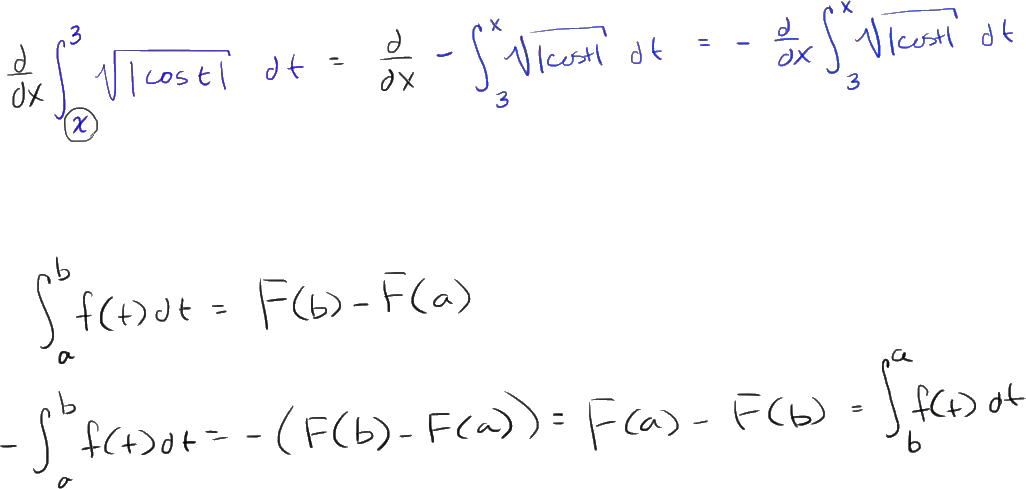 d/dx ∫_x^3 √|cos t| dt = d/dx - ∫_3^x √|cost| dt = - d/dx ∫_3^x √|cost| dt
∫_a^b f(t)dt = F(b) - F(a)
- ∫_a^b f(t)dt = - (F(b) - F(a)) = F(a) - F(b) = ∫_b^a f(t) dt